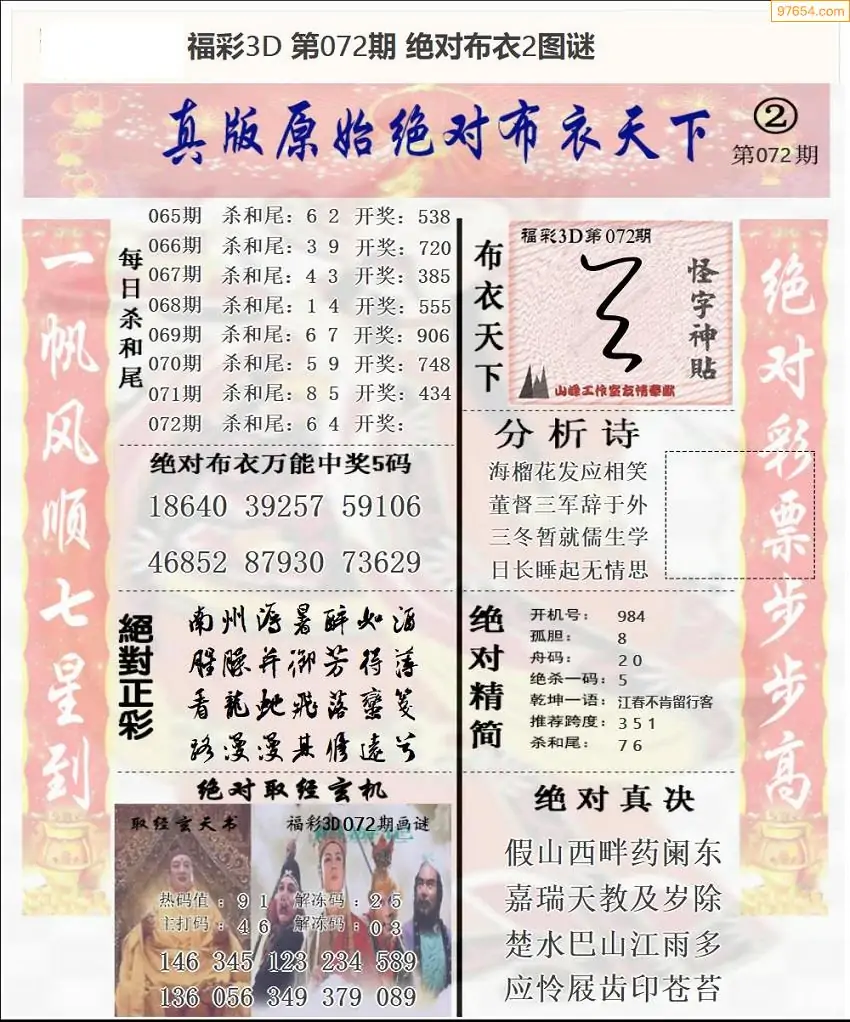 97654.com
福彩3D 第072期 绝对布衣2图谜
真版原始绝对布衣天下
②
第072期
一帆风顺七星到
每日杀和尾
065期 杀和尾：6 2 开奖：538
066期 杀和尾：3 9 开奖：720
067期 杀和尾：4 3 开奖：385
068期 杀和尾：1 4 开奖：555
069期 杀和尾：6 7 开奖：906
070期 杀和尾：5 9 开奖：748
071期 杀和尾：8 5 开奖：434
072期 杀和尾：6 4 开奖：
绝对布衣万能中奖5码
18640 39257 59106
46852 87930 73629
絕對正彩
南州溽暑醉如酒
腥臊并御芳得薄
看龍蛇飛落蠻箋
路漫漫其修遠兮
绝对取经玄机
取经玄天书
福彩3D072期画谜
热码值：9 1 解冻码：2 5
主打码：4 6 解冻码：0 3
146 345 123 234 589
136 056 349 379 089
布衣天下
福彩3D第072期
怪字神贴
山峰工作室友情奉献
分析诗
海榴花发应相笑
董督三军辞于外
三冬暂就儒生学
日长睡起无情思
绝对精简
开机号： 984
孤胆： 8
舟码： 2 0
绝杀一码：5
乾坤一语：江春不肯留行客
推荐跨度：3 5 1
杀和尾： 7 6
绝对真决
假山西畔药阑东
嘉瑞天教及岁除
楚水巴山江雨多
应怜屐齿印苍苔
绝对彩票步步高